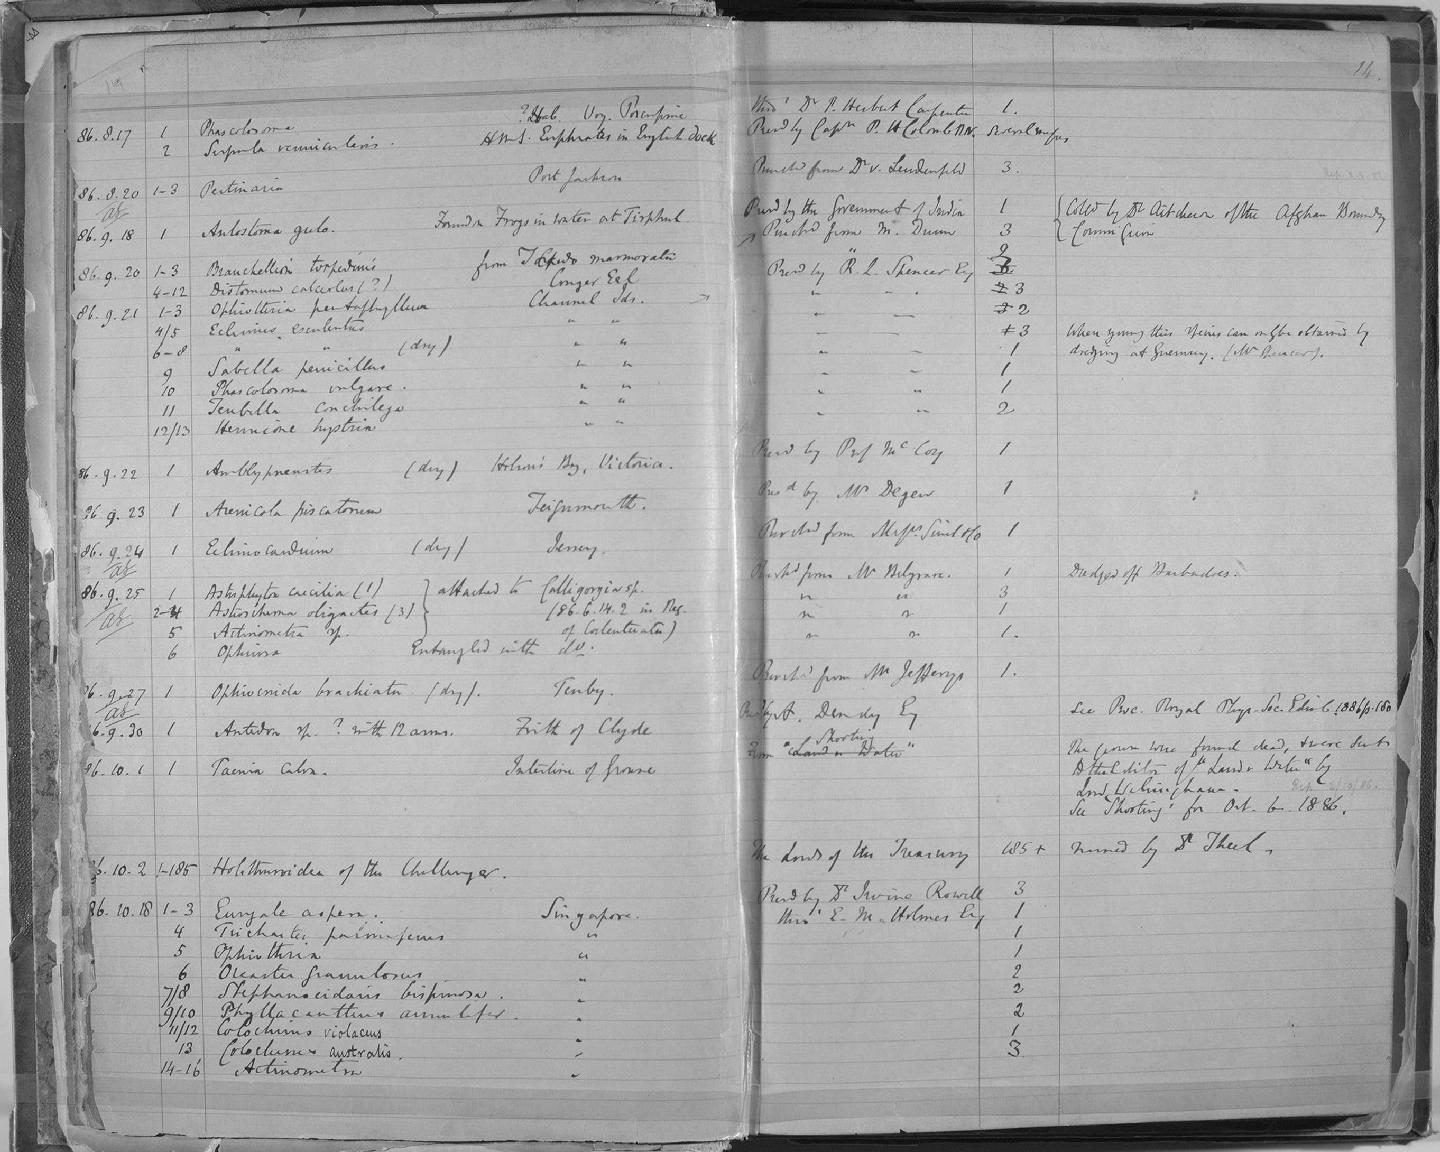 14.
86.8.17 1 Phascolosoma ? Hab. Voy. Porcupine thro' Dr P. Herbert Carpenter 1.
2 Serpula vermicularis. H.M.S. Euphrates in English Dock Presd by Captn P. H. Colomb R.N. several
86.8.20 1-3 Pectinaria Port Jackson Purchd from Dr v. Lendenfeld 3.
as
86.9.18 1 Aulostoma gulo. Found in Frogs in water at Presd by the Government of India 1 Colld by Dr Aitchison of the Afghan Boundary
Commission
86.9.20 1-3 Branchellion torpedinis from Torpedo marmorata Purchd from M. Dunn 3
4-12 Distomum calceolus (?) Conger Eel " 9
86.9.21 1-3 Ophiothrix pentaphyllum Channel Ids. Presd by R. L. Spencer Esq 3
4/5 Echinus esculentus " " " " 2
6-8 " " (dry) " " " 3 When young this species can only be obtained by
dredging at Guernsey. (Mr Spencer).
9 Sabella penicillus " " " 1
10 Phascolosoma vulgare. " " " " 1
11 Terebella conchilega " " " " 1
12/13 Hermione hystrix " " " " 2
86.9.22 1 Amblypneustes (dry) Hobson's Bay, Victoria. Presd by Prof McCoy 1
86.9.23 1 Arenicola piscatorum Teignmouth. Presd by Mr Degen 1
86.9.24 1 Echinocardium (dry) Jersey. Purchd from Messrs Sinel & Co 1
as
86.9.25 1 Astrophyton caecilia (1) attached to Calligorgia sp. Purchd from Mr Belgrave. 1 Dredged off Barbadoes.
as
2-4 Astroschema oligactes (3) (86.6.14.2 in Reg. " " 3
5 Actinometra sp. of Coelenterata) " " 1
6 Ophiura Entangled with do. " " 1.
86.9.27 1 Ophiocnida brachiata (dry). Tenby. Purchd from Mr Jefferys 1.
as
86.9.30 1 Antedon sp. ? with 12 arms. Frith of Clyde Presd by A. Dendy Esq See Proc. Royal Phys. Soc. Edinb. 1886 p. 180
86.10.1 1 Taenia calva. Intestine of Grouse From "Shooting" "Land & Water" The grouse were found dead, & were sent
to the Editor of "Land & Water" by
Lord Walsingham.
See 'Shooting' for Oct. 6. 1886.
86.10.2 1-185 Holothuroidea of the Challenger. The Lords of the Treasury 185+ named by Dr Théel.
86.10.18 1-3 Euryale aspera. Singapore. Presd by Dr Irvine Rowell 3
4 Trichaster palmiferus " thro' E. M. Holmes Esq 1
5 Ophiothrix " 1
6 Oreaster granulosus " 1
7/8 Stephanocidaris bispinosa. " 2
9/10 Phyllacanthus annulifer. " 2
11/12 Colochirus violaceus " 2
13 Colochirus australis. " 1
14-16 Actinometra " 3